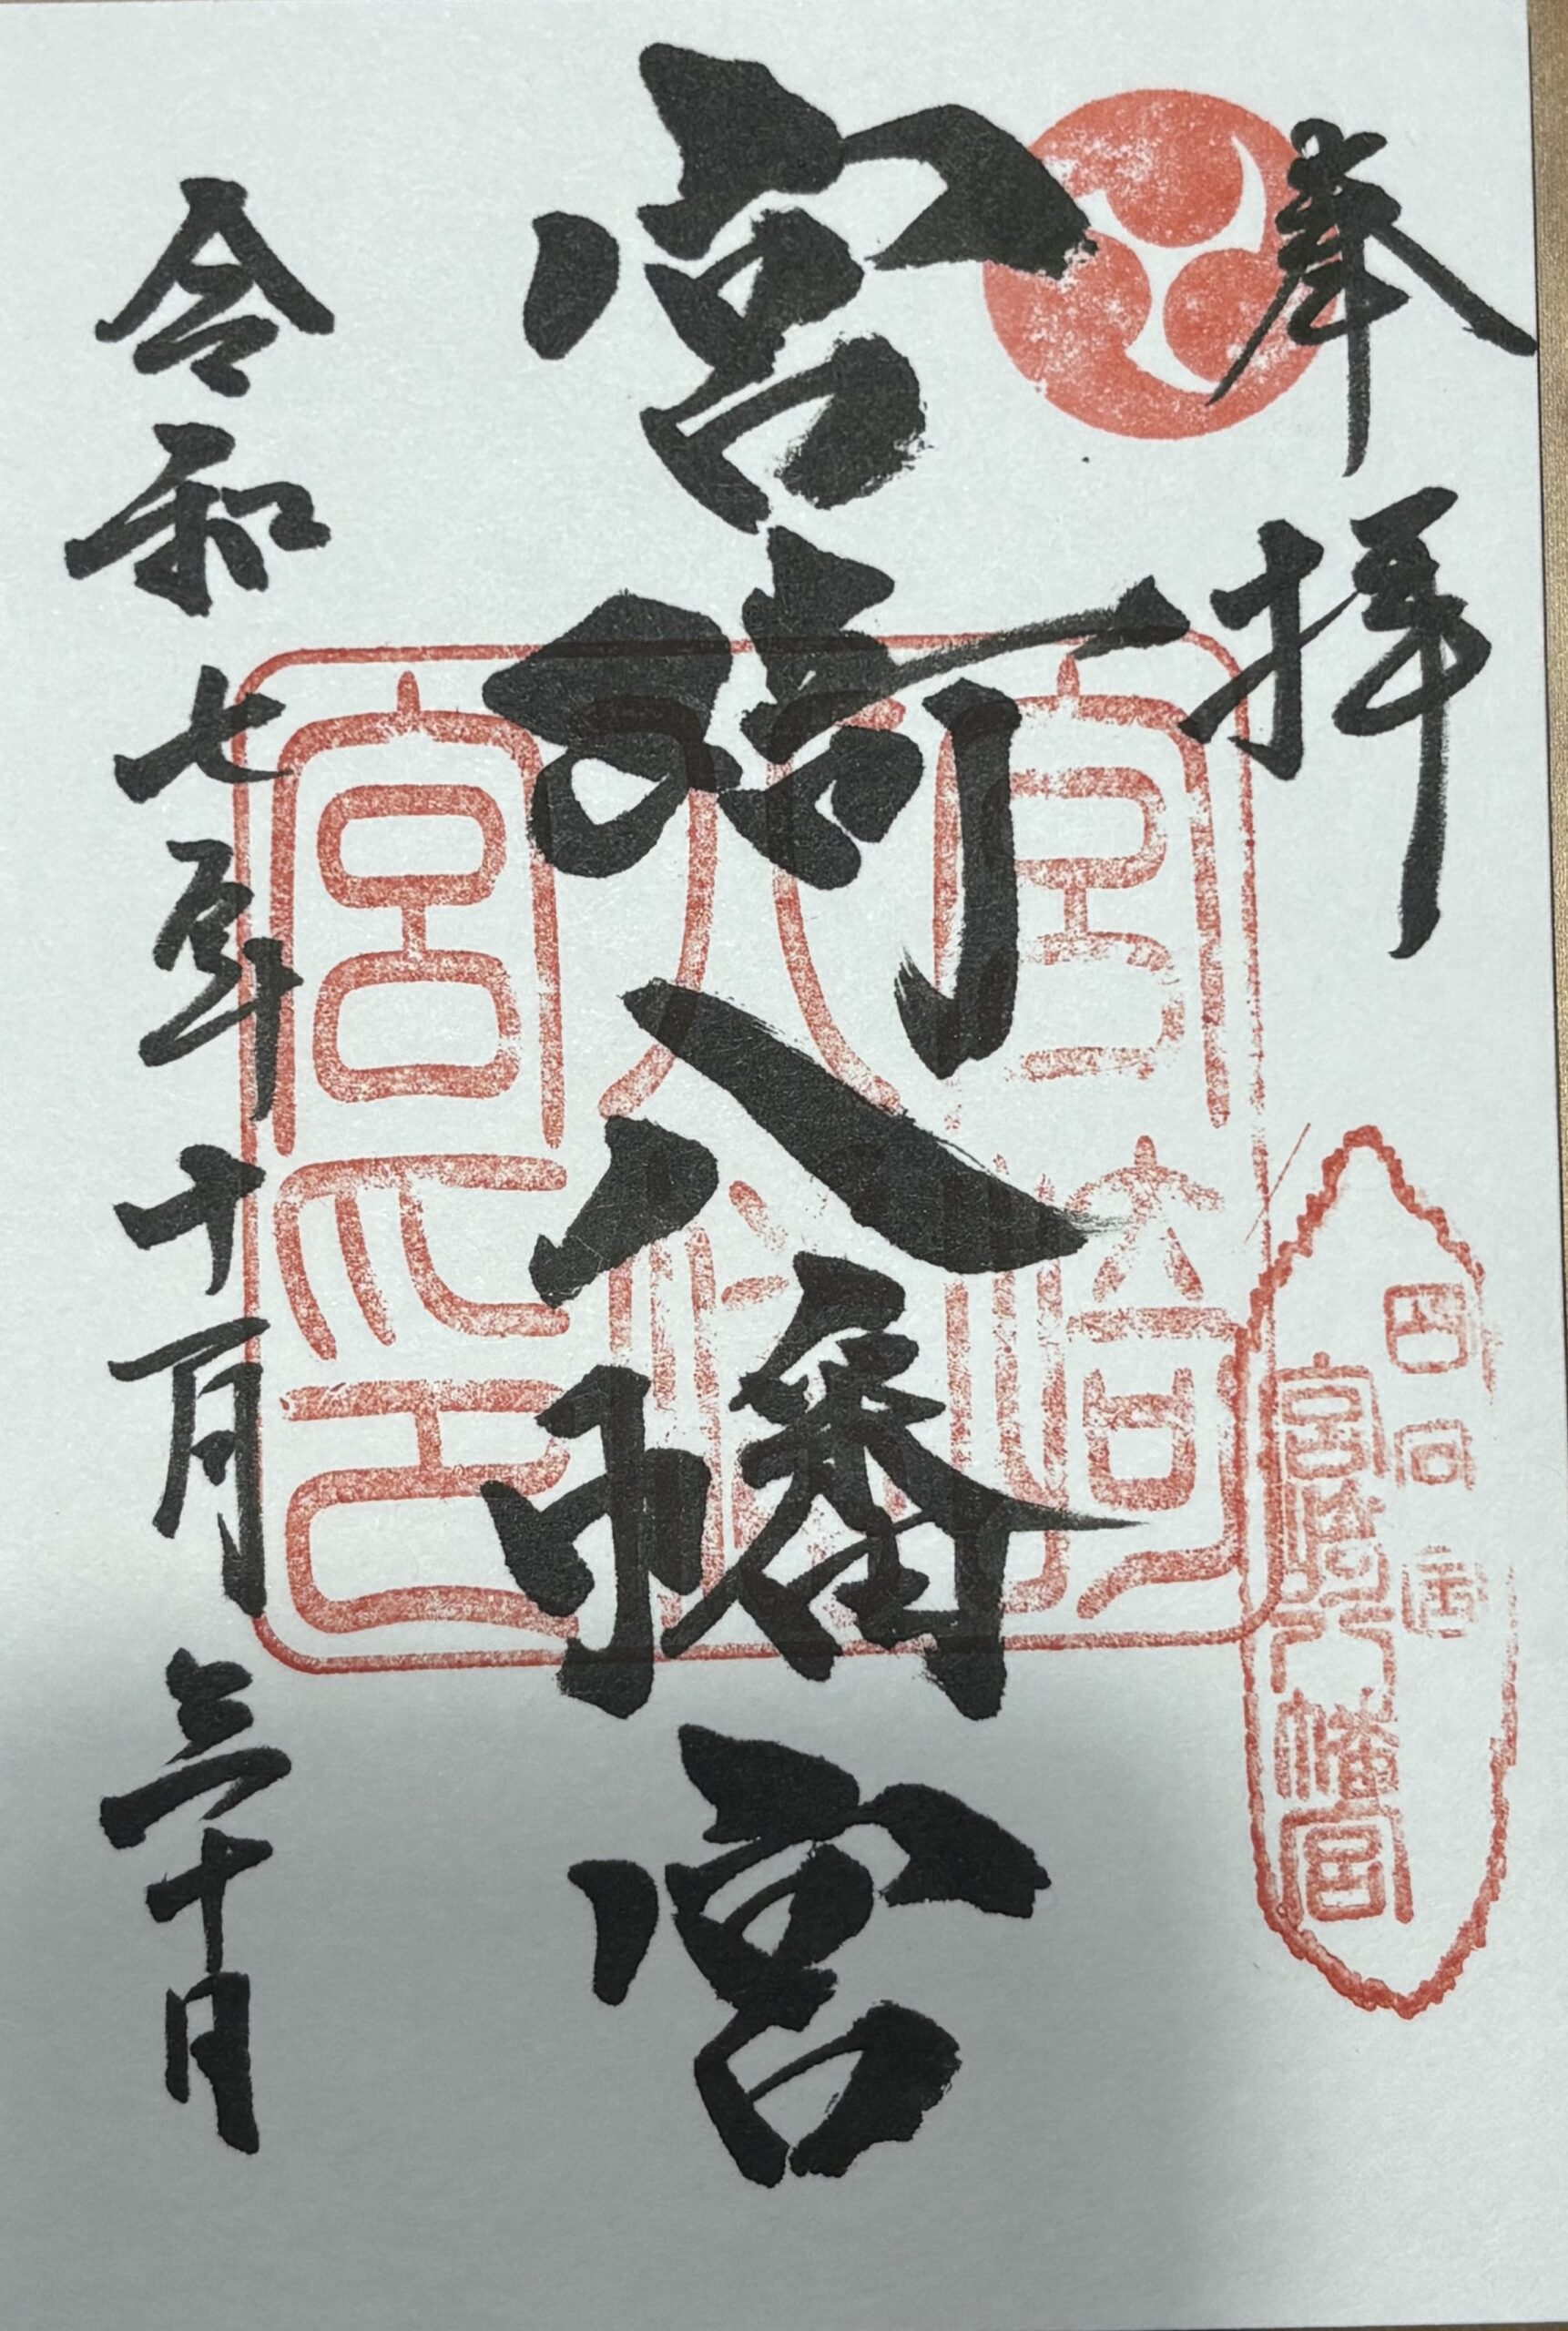 奉拝
宮崎八幡宮
令和七年十月三十日
宮崎八幡宮印
宮崎八幡宮